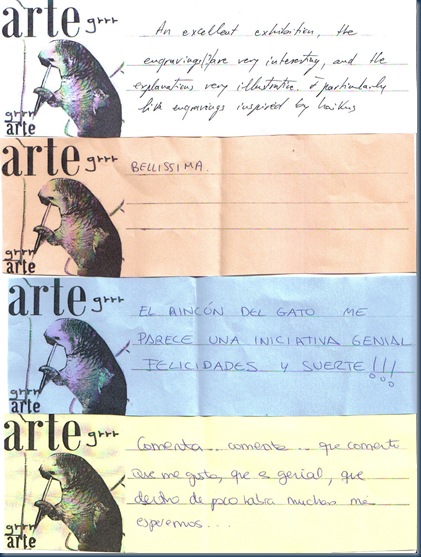 arte grrr
An excellent exhibition, the
engravings(?) are very interesting, and the
explanations very illustrative. I particularly
like engravings inspired by haikus
grrr
arte
arte grrr
BELLISSIMA.
grrr
arte
arte grrr
EL RINCÓN DEL GATO ME
PARECE UNA INICIATIVA GENIAL
FELICIDADES Y SUERTE!!!
grrr
arte
arte grrr
Comenta.. comenta... que comento
Que me gusta, que es genial, que
dentro de poco habra muchos mas
esperemos...
grrr
arte